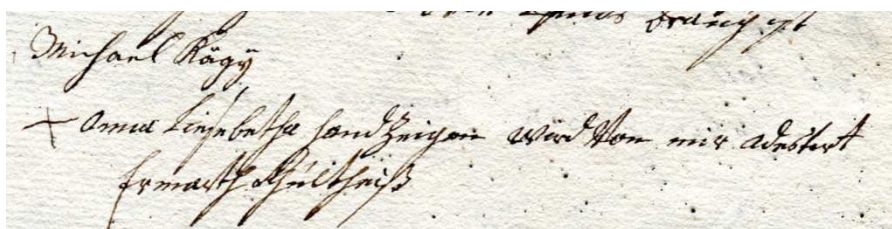 Michael Kägÿ
+ Anna Liesebetha handzeigen wird Von mir adestirt
Schültheiß